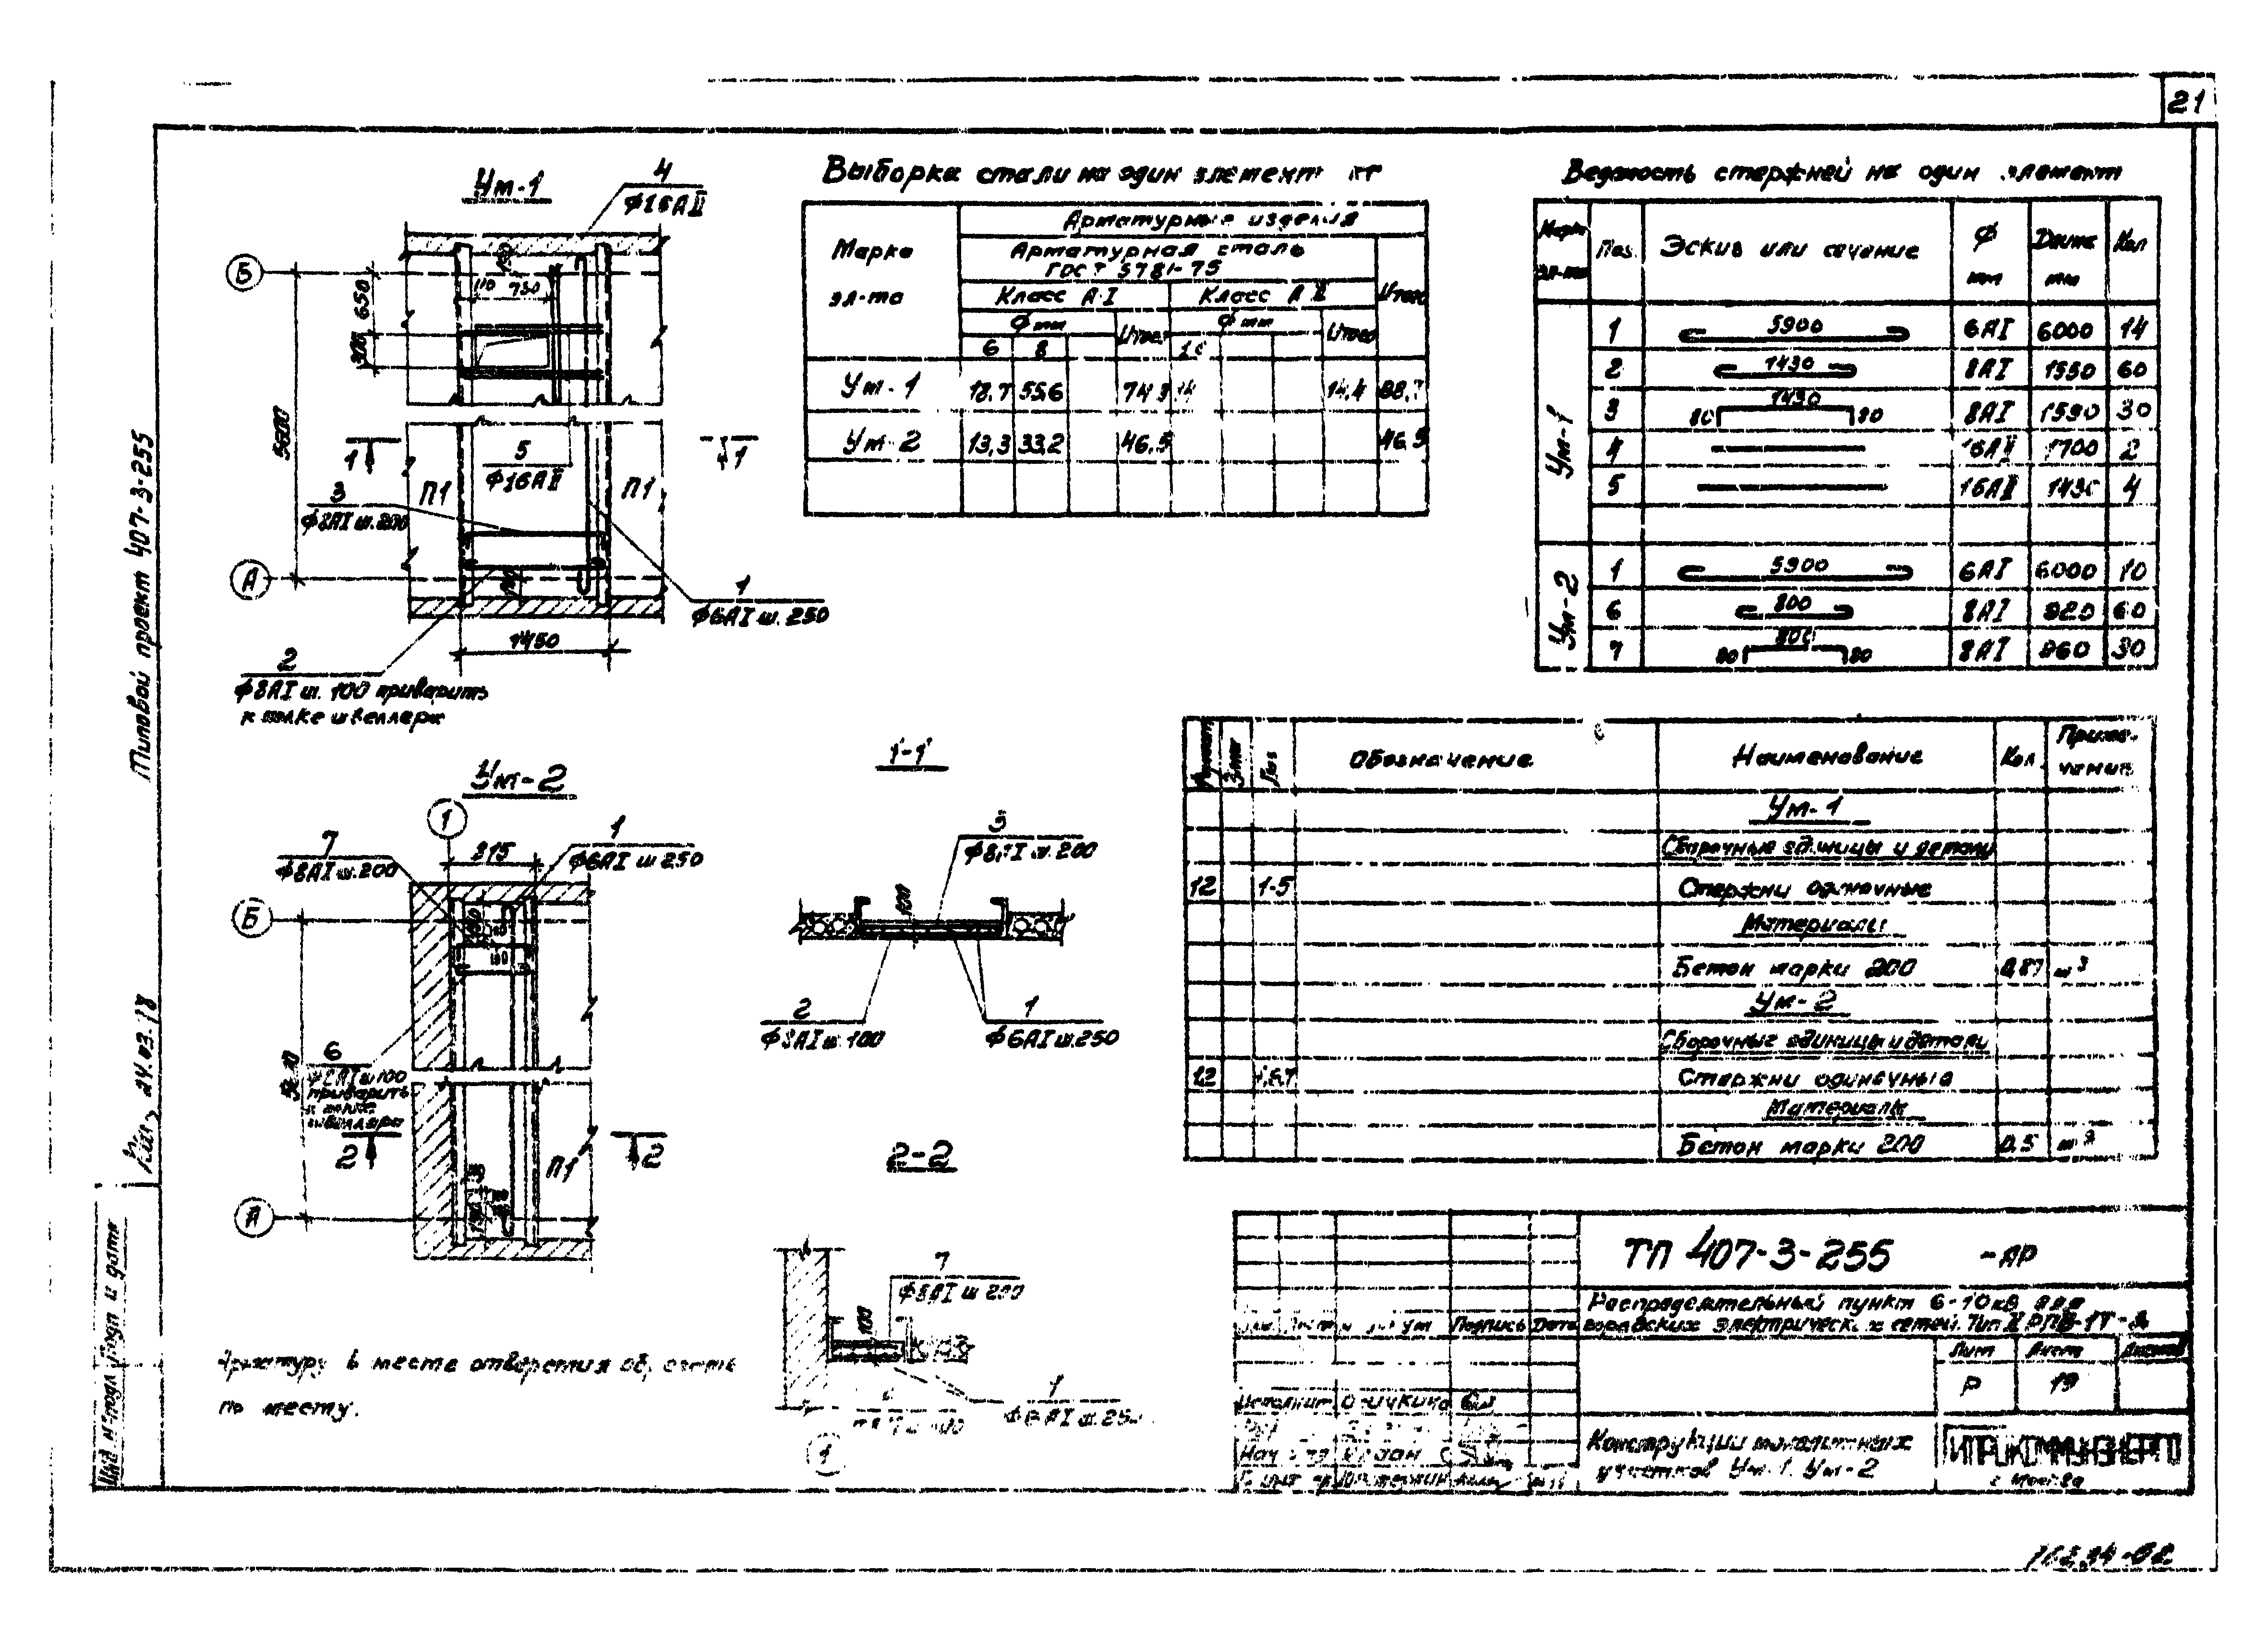 21
Типовой проект 407-3-255
24.03.78
Инв N° подл Подп и дата
Ум-1
4
ф16АII
Б
650
300
110 730
5600
1 1
5
ф16АII
П1 П1
3
ф8АI ш.200
А
1
ф6АI ш.250
1450
2
ф8АI ш.100 приварить
к полке швеллера
Ум-2
1
7
ф8АI ш.200
315
1
ф6АI ш 250
Б
6
ф8АI ш 100
приварить
к полке
швеллера
2 2
П1
А
Арматуру в месте отверстия
по месту.
1-1
3
ф8АI ш.200
100
2
ф8АI ш.100
1
ф6АI ш.250
2-2
7
ф8АI ш 200
100
1
ф6АI ш.250
1
Выборка стали на один элемент кг
Марка
эл-та
Арматурные изделия
Арматурная сталь
ГОСТ 5781-75
Класс А-I Класс А II Итого
ф мм Итого ф мм Итого
6 8 16
Ум-1 18,7 55,6 74,3 14,4 88,7
Ум-2 13,3 33,2 46,5 46,5
Ведомость стержней на один элемент
Марка эл-та Поз. Эскиз или сечение ф мм Длина мм Кол
Ум-1
1 5900 6АI 6000 14
2 1430 8АI 1550 60
3 80 1430 80 8АI 1590 30
4 16АII 1700 2
5 16АII 1430 4
Ум-2
1 5900 6АI 6000 10
6 800 8АI 920 60
7 80 800 80 8АI 960 30
Формат Зона Поз Обозначение Наименование Кол. Примечание
Ум-1
Сборочные единицы и детали
12 1-5 Стержни одиночные
Материалы
Бетон марки 200 0,87 м3
Ум-2
Сборочные единицы и детали
12 1,6,7 Стержни одиночные
Материалы
Бетон марки 200 0,5 м3
ТП 407-3-255 -АР
Распределительный пункт 6-10кВ для
городских электрических сетей. Тип II
Подпись Дата
Лит Лист Листов
Р 19
Исполнит
Конструкции монолитных
участков Ум-1, Ум-2
ГИПРОКОММУНЭНЕРГО
г. Москва